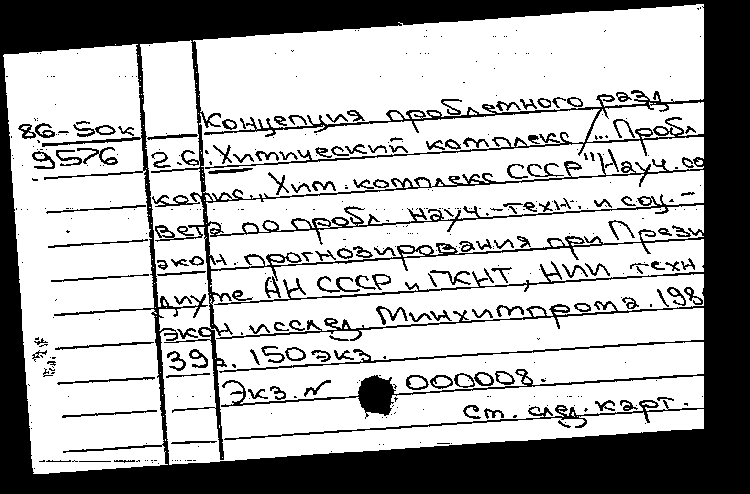 Концепция проблемного разд.
86-50к
9576 2.6: Химический комплекс / ... Пробл
комис. „Хим. комплекс СССР" Науч. со
вета по пробл. науч.-техн. и соц.-
экон. прогнозирования при Прези
диуме АН СССР и ГКНТ, НИИ техн.
экон. исслед. Минхимпрома. 198
39с. 150 экз.
Экз. N 000008.
См. след. карт.